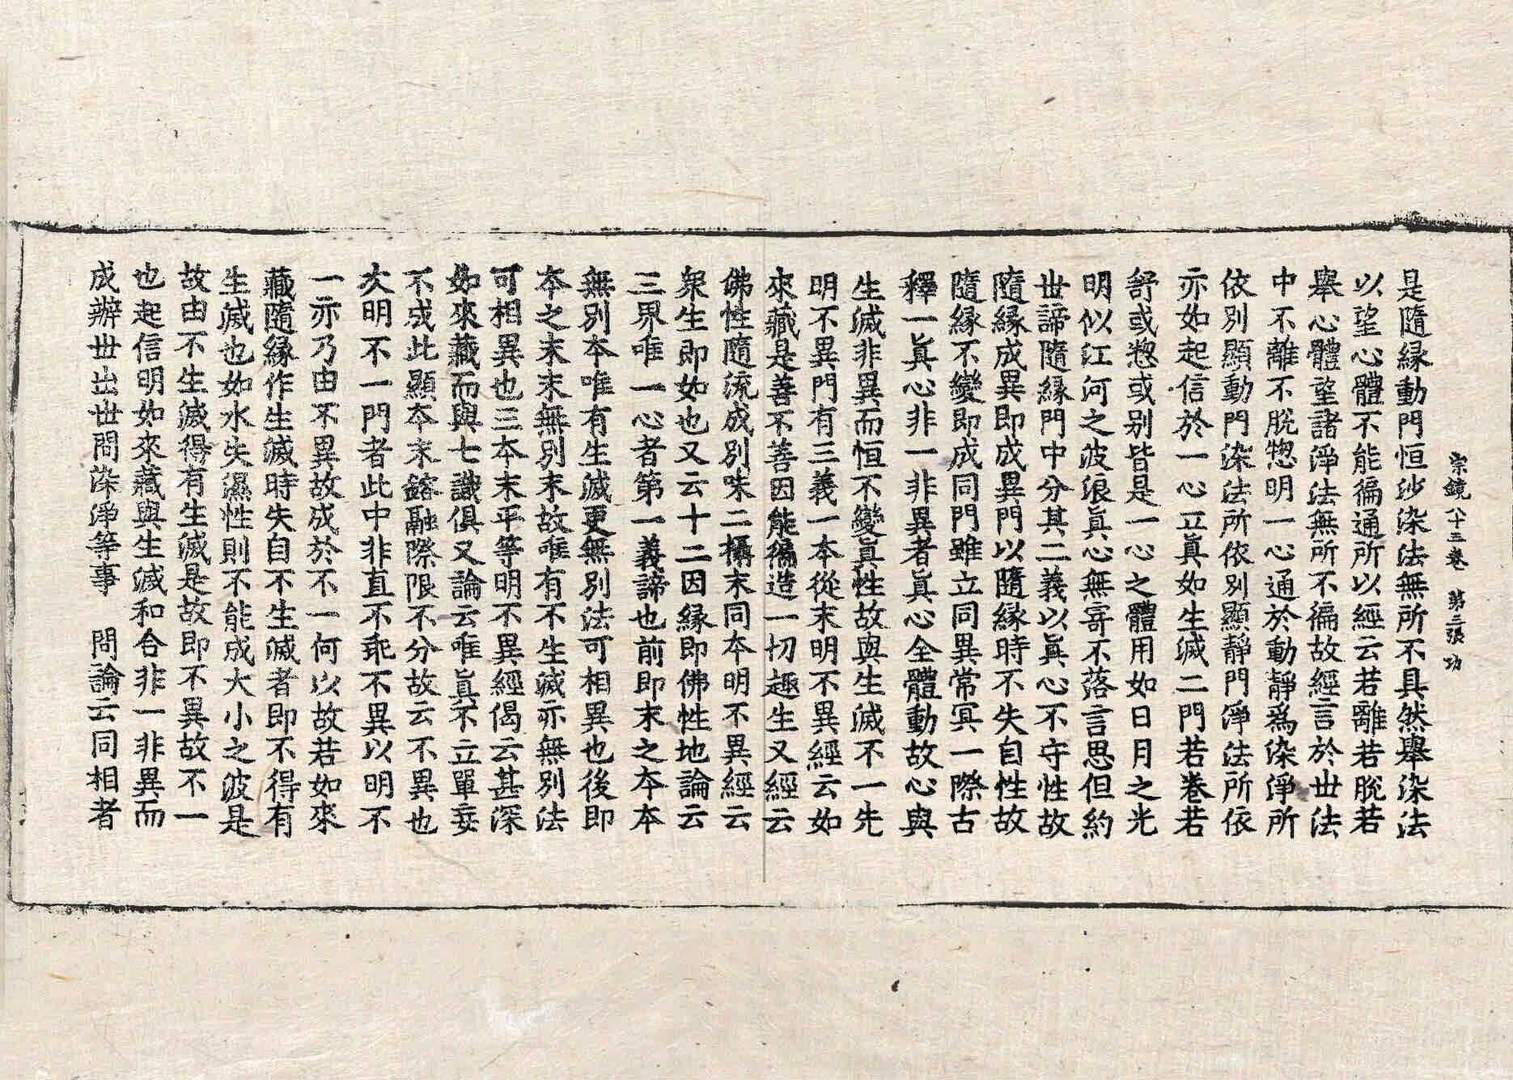 宗鏡八十三卷 第三張 功
是隨緣動門恒沙染法無所不具然舉染法
以望心體不能徧通所以經云若離若脫若
舉心體望諸淨法無所不徧故經言於世法
中不離不脫惣明一心通於動靜爲染淨所
依別顯動門染法所依別顯靜門淨法所依
亦如起信於一心立眞如生滅二門若卷若
舒或惣或別皆是一心之體用如日月之光
明似江河之波浪眞心無寄不落言思但約
世諦隨緣門中分其二義以眞心不守性故
隨緣成異即成異門以隨緣時不失自性故
隨緣不變即成同門雖立同異常冥一際古
釋一眞心非一非異者眞心全體動故心與
生滅非異而恒不變眞性故與生滅不一先
明不異門有三義一本從末明不異經云如
來藏是善不善因能徧造一切趣生又經云
佛性隨流成別味二攝末同本明不異經云
衆生即如也又云十二因緣即佛性地論云
三界唯一心者第一義諦也前即末之本本
無別本唯有生滅更無別法可相異也後即
本之末末無別末故唯有不生滅亦無別法
可相異也三本末平等明不異經偈云甚深
如來藏而與七識俱又論云唯眞不立單妄
不成此顯本末鎔融際限不分故云不異也
次明不一門者此中非直不乖不異以明不
一亦乃由不異故成於不一何以故若如來
藏隨緣作生滅時失自不生滅者即不得有
生滅也如水失濕性則不能成大小之波是
故由不生滅得有生滅是故即不異故不一
也起信明如來藏與生滅和合非一非異而
成辦世出世間染淨等事　問論云同相者